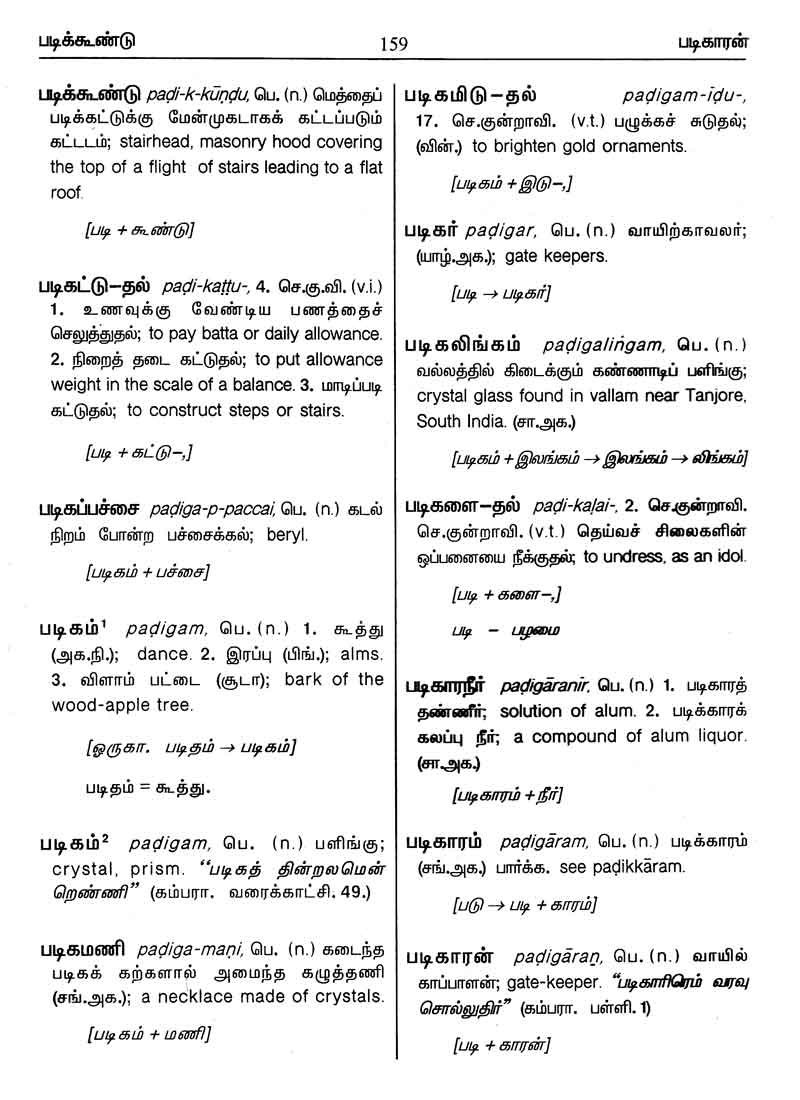 படிக்கூண்டு
159
படிகாரன்
படிக்கூண்டு paḍi-k-kūṇḍu, பெ. (n.) மெத்தைப்
படிக்கட்டுக்கு மேன்முகடாகக் கட்டப்படும்
கட்டடம்; stairhead, masonry hood covering
the top of a flight of stairs leading to a flat
roof.
[படி + கூண்டு]
படிகட்டு-தல் paḍi-kaṭṭu-, 4. செ.கு.வி. (v.i.)
1. உணவுக்கு வேண்டிய பணத்தைச்
செலுத்துதல்; to pay batta or daily allowance.
2. நிறைத் தடை கட்டுதல்; to put allowance
weight in the scale of a balance. 3. மாடிப்படி
கட்டுதல்; to construct steps or stairs.
[படி + கட்டு-,]
படிகப்பச்சை paḍiga-p-paccai, பெ. (n.) கடல்
நிறம் போன்ற பச்சைக்கல்; beryl.
[படிகம் + பச்சை]
படிகம்¹ paḍigam, பெ. (n.) 1. கூத்து
(அக.நி.); dance. 2. இரப்பு (பிங்.); alms.
3. விளாம் பட்டை (சூடா); bark of the
wood-apple tree.
[ஒருகா. படிதம் → படிகம்]
படிதம் = கூத்து.
படிகம்² paḍigam, பெ. (n.) பளிங்கு;
crystal, prism. “படிகத் தின்றலமென்
றெண்ணி” (கம்பரா. வரைக்காட்சி. 49.)
படிகமணி paḍiga-maṇi, பெ. (n.) கடைந்த
படிகக் கற்களால் அமைந்த கழுத்தணி
(சங்.அக.); a necklace made of crystals.
[படிகம் + மணி]
படிகமிடு-தல் paḍigam-iḍu-,
17. செ.குன்றாவி. (v.t.) பழுக்கச் சுடுதல்;
(வின்.) to brighten gold ornaments.
[படிகம் + இடு-,]
படிகர் paḍigar, பெ. (n.) வாயிற்காவலர்;
(யாழ்.அக.); gate keepers.
[படி → படிகர்]
படிகலிங்கம் paḍigaliṅgam, பெ. (n.)
வல்லத்தில் கிடைக்கும் கண்ணாடிப் பளிங்கு;
crystal glass found in vallam near Tanjore,
South India. (சா.அக.)
[படிகம் + இலங்கம் → இலங்கம் → லிங்கம்]
படிகளை-தல் paḍi-kaḷai-, 2. செ.குன்றாவி.
செ.குன்றாவி. (v.t.) தெய்வச் சிலைகளின்
ஒப்பனையை நீக்குதல்; to undress, as an idol.
[படி + களை-,]
படி – பழமை
படிகாரநீர் paḍigāranīr, பெ. (n.) 1. படிகாரத்
தண்ணீர்; solution of alum. 2. படிக்காரக்
கலப்பு நீர்; a compound of alum liquor.
(சா.அக.)
[படிகாரம் + நீர்]
படிகாரம் paḍigāram, பெ. (n.) படிக்காரம்
(சங்.அக.) பார்க்க. see paḍikkāram.
[படு → படி + காரம்]
படிகாரன் paḍigāraṉ, பெ. (n.) வாயில்
காப்பாளன்; gate-keeper. “படிகாரிரெம் வரவு
சொல்லுதிர்” (கம்பரா. பள்ளி. 1)
[படி + காரன்]